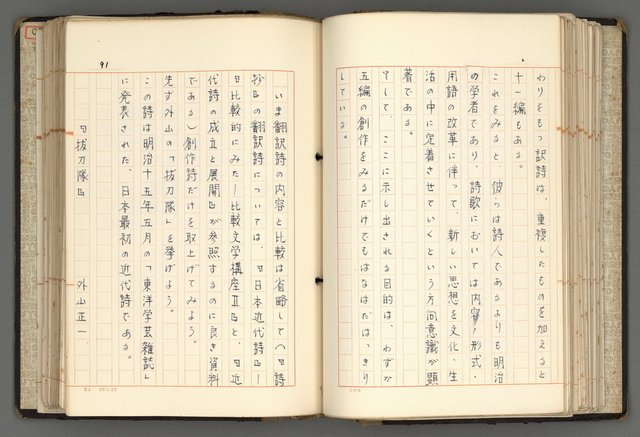 わりをもつ訳詩は、重複したものを加えると
十一編もある。
これをみると、彼らは詩人であるよりも明治
の学者であり、詩歌においては内容・形式・
用語の改革に伴って、新しい思想を文化・生
活の中に定着させていくという方向意識が顕
著である。
そして、ここに示し出される目的は、わずか
五編の創作をみるだけでもはなはだはっきり
している。
91
いま翻訳詩の内容と比較は省略して（『詩
抄』の翻訳詩については、『日本近代詩』―
『比較的にみた―比較文学講座Ⅱ』と、『近
代詩の成立と展開』が参照するのに良き資料
である）創作詩だけを取上げてみよう。
先ず外山の「抜刀隊」を挙げよう。
この詩は明治十五年五月の「東洋学芸雑誌」
に発表された、日本最初の近代詩である。
『抜刀隊』 外山正一